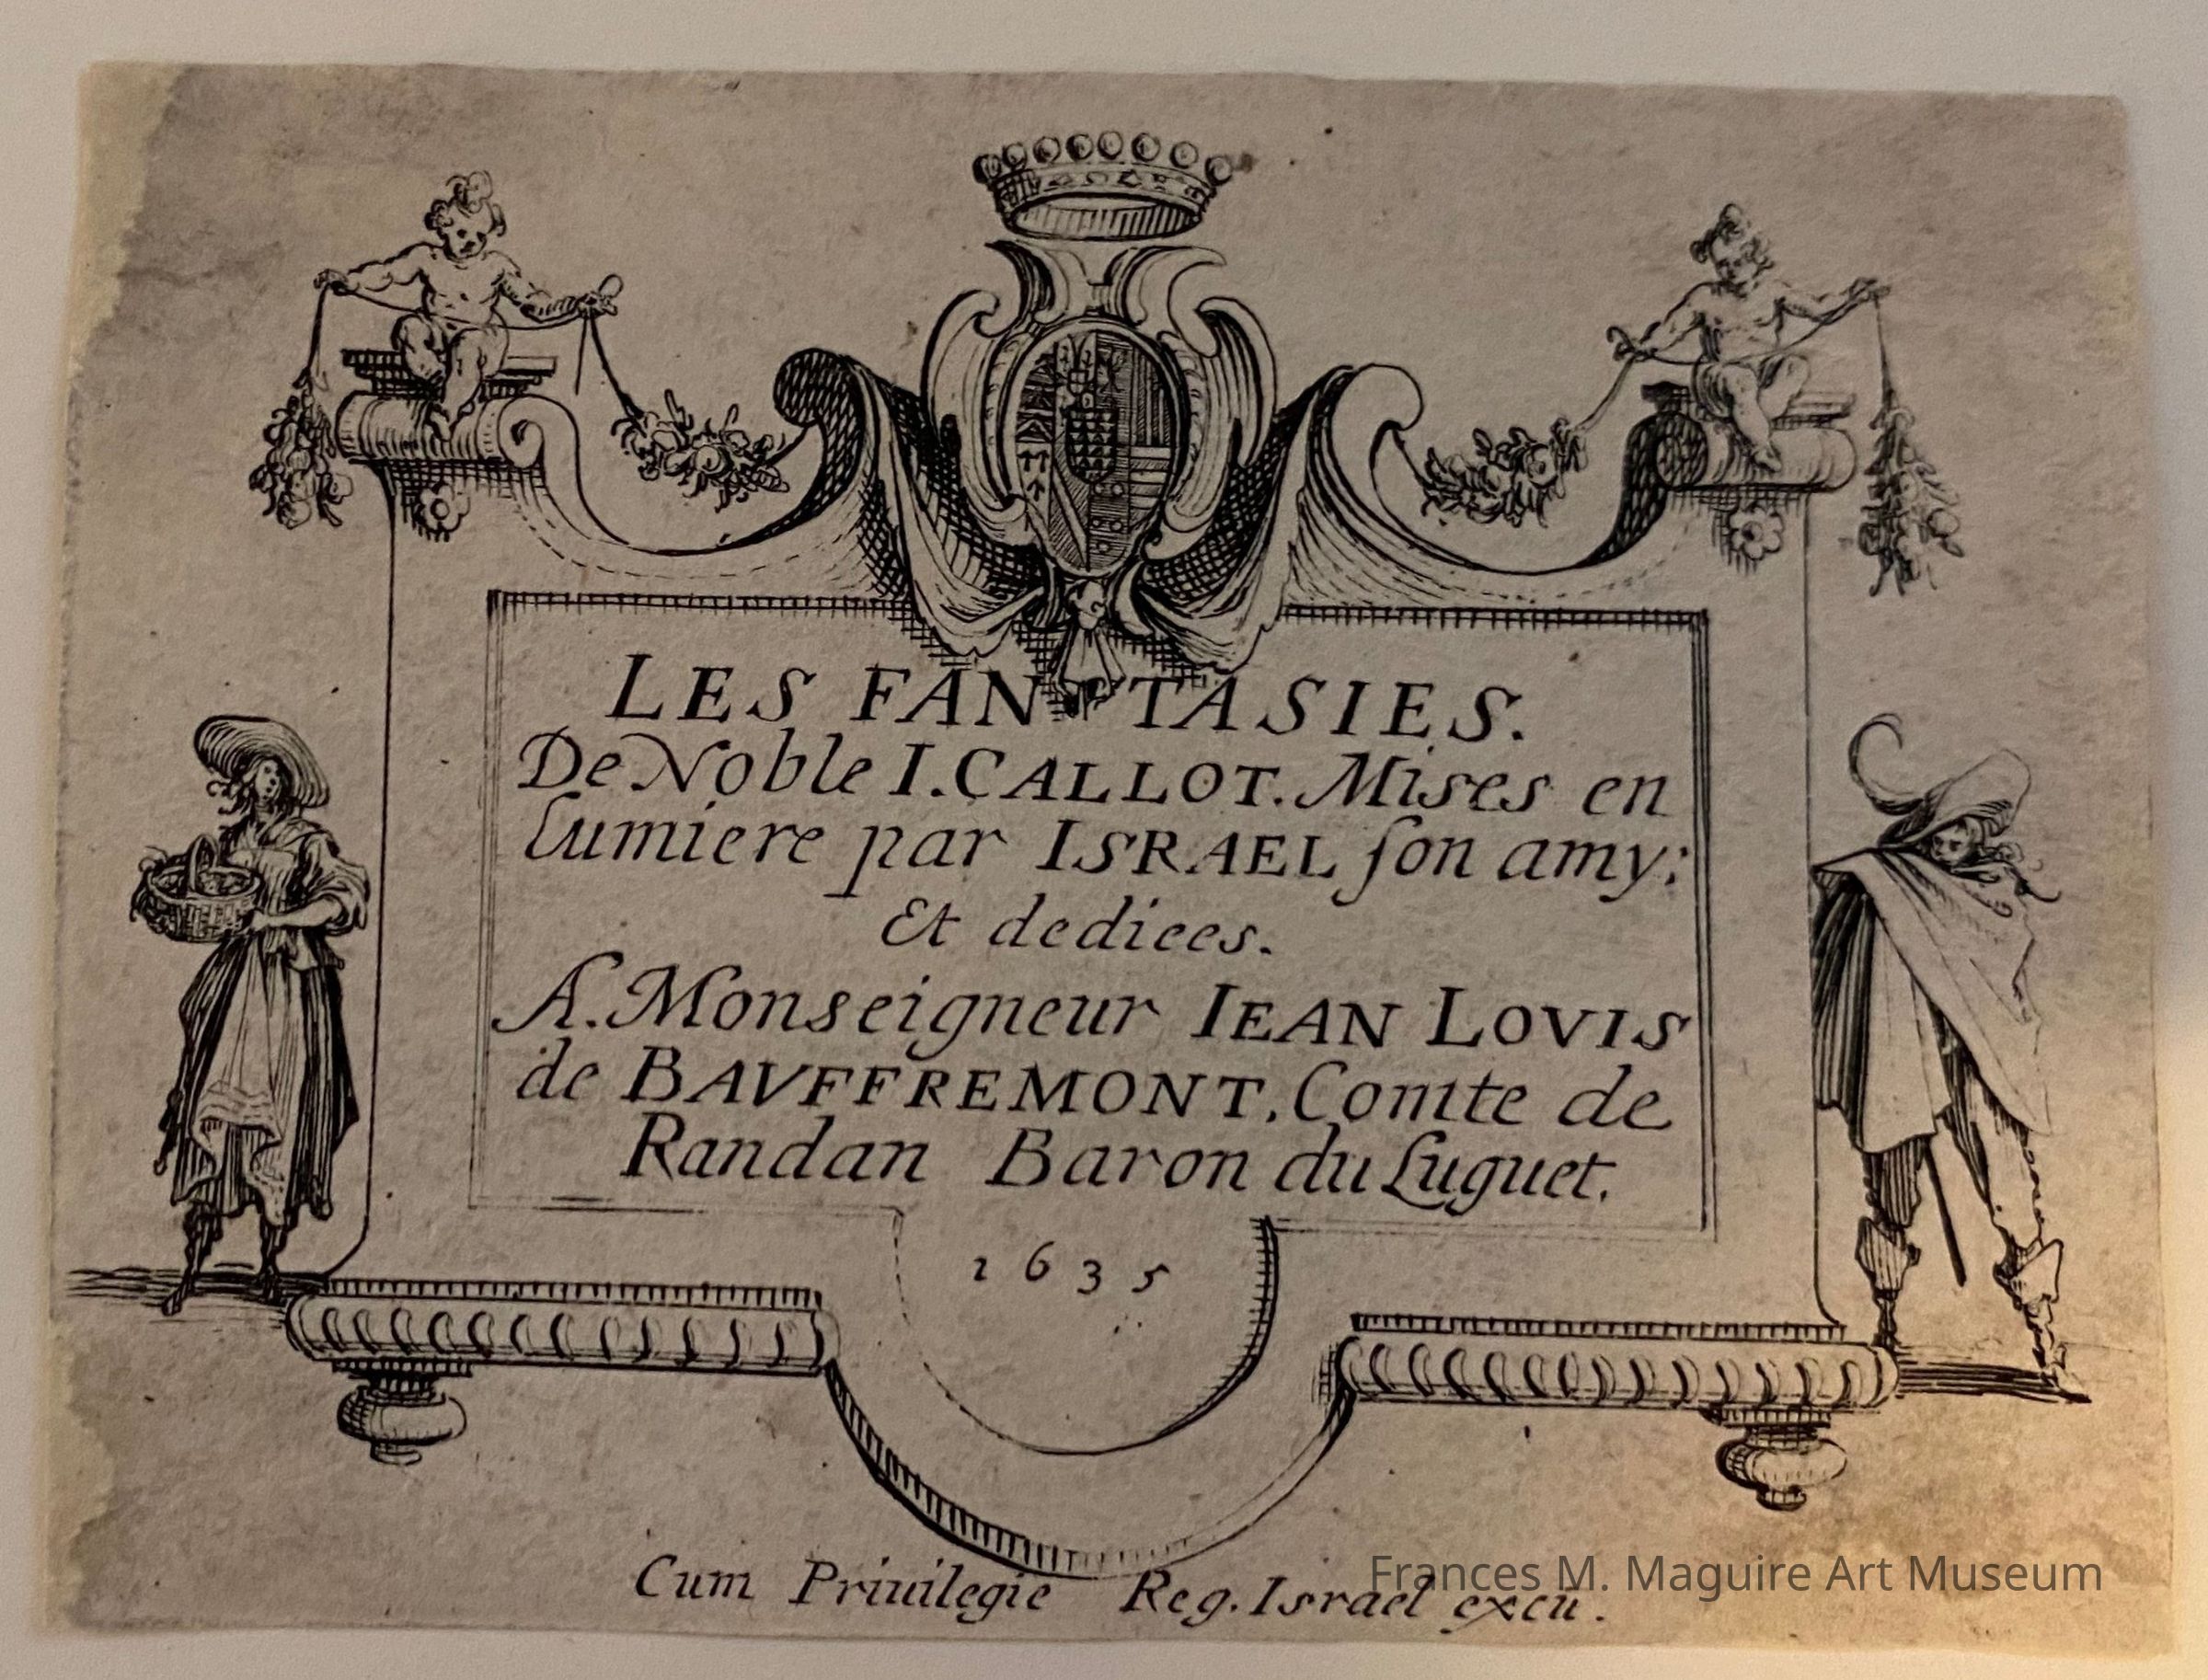 LES FANTASIES.
De Noble I. CALLOT. Mises en
lumiere par ISRAEL ſon amy;
Et dediees.
A. Monseigneur IEAN LOVIS
de BAVFFREMONT, Comte de
Randan Baron du Luguet.
1635
Cum Priuilegie Reg. Israel excu.
Frances M. Maguire Art Museum